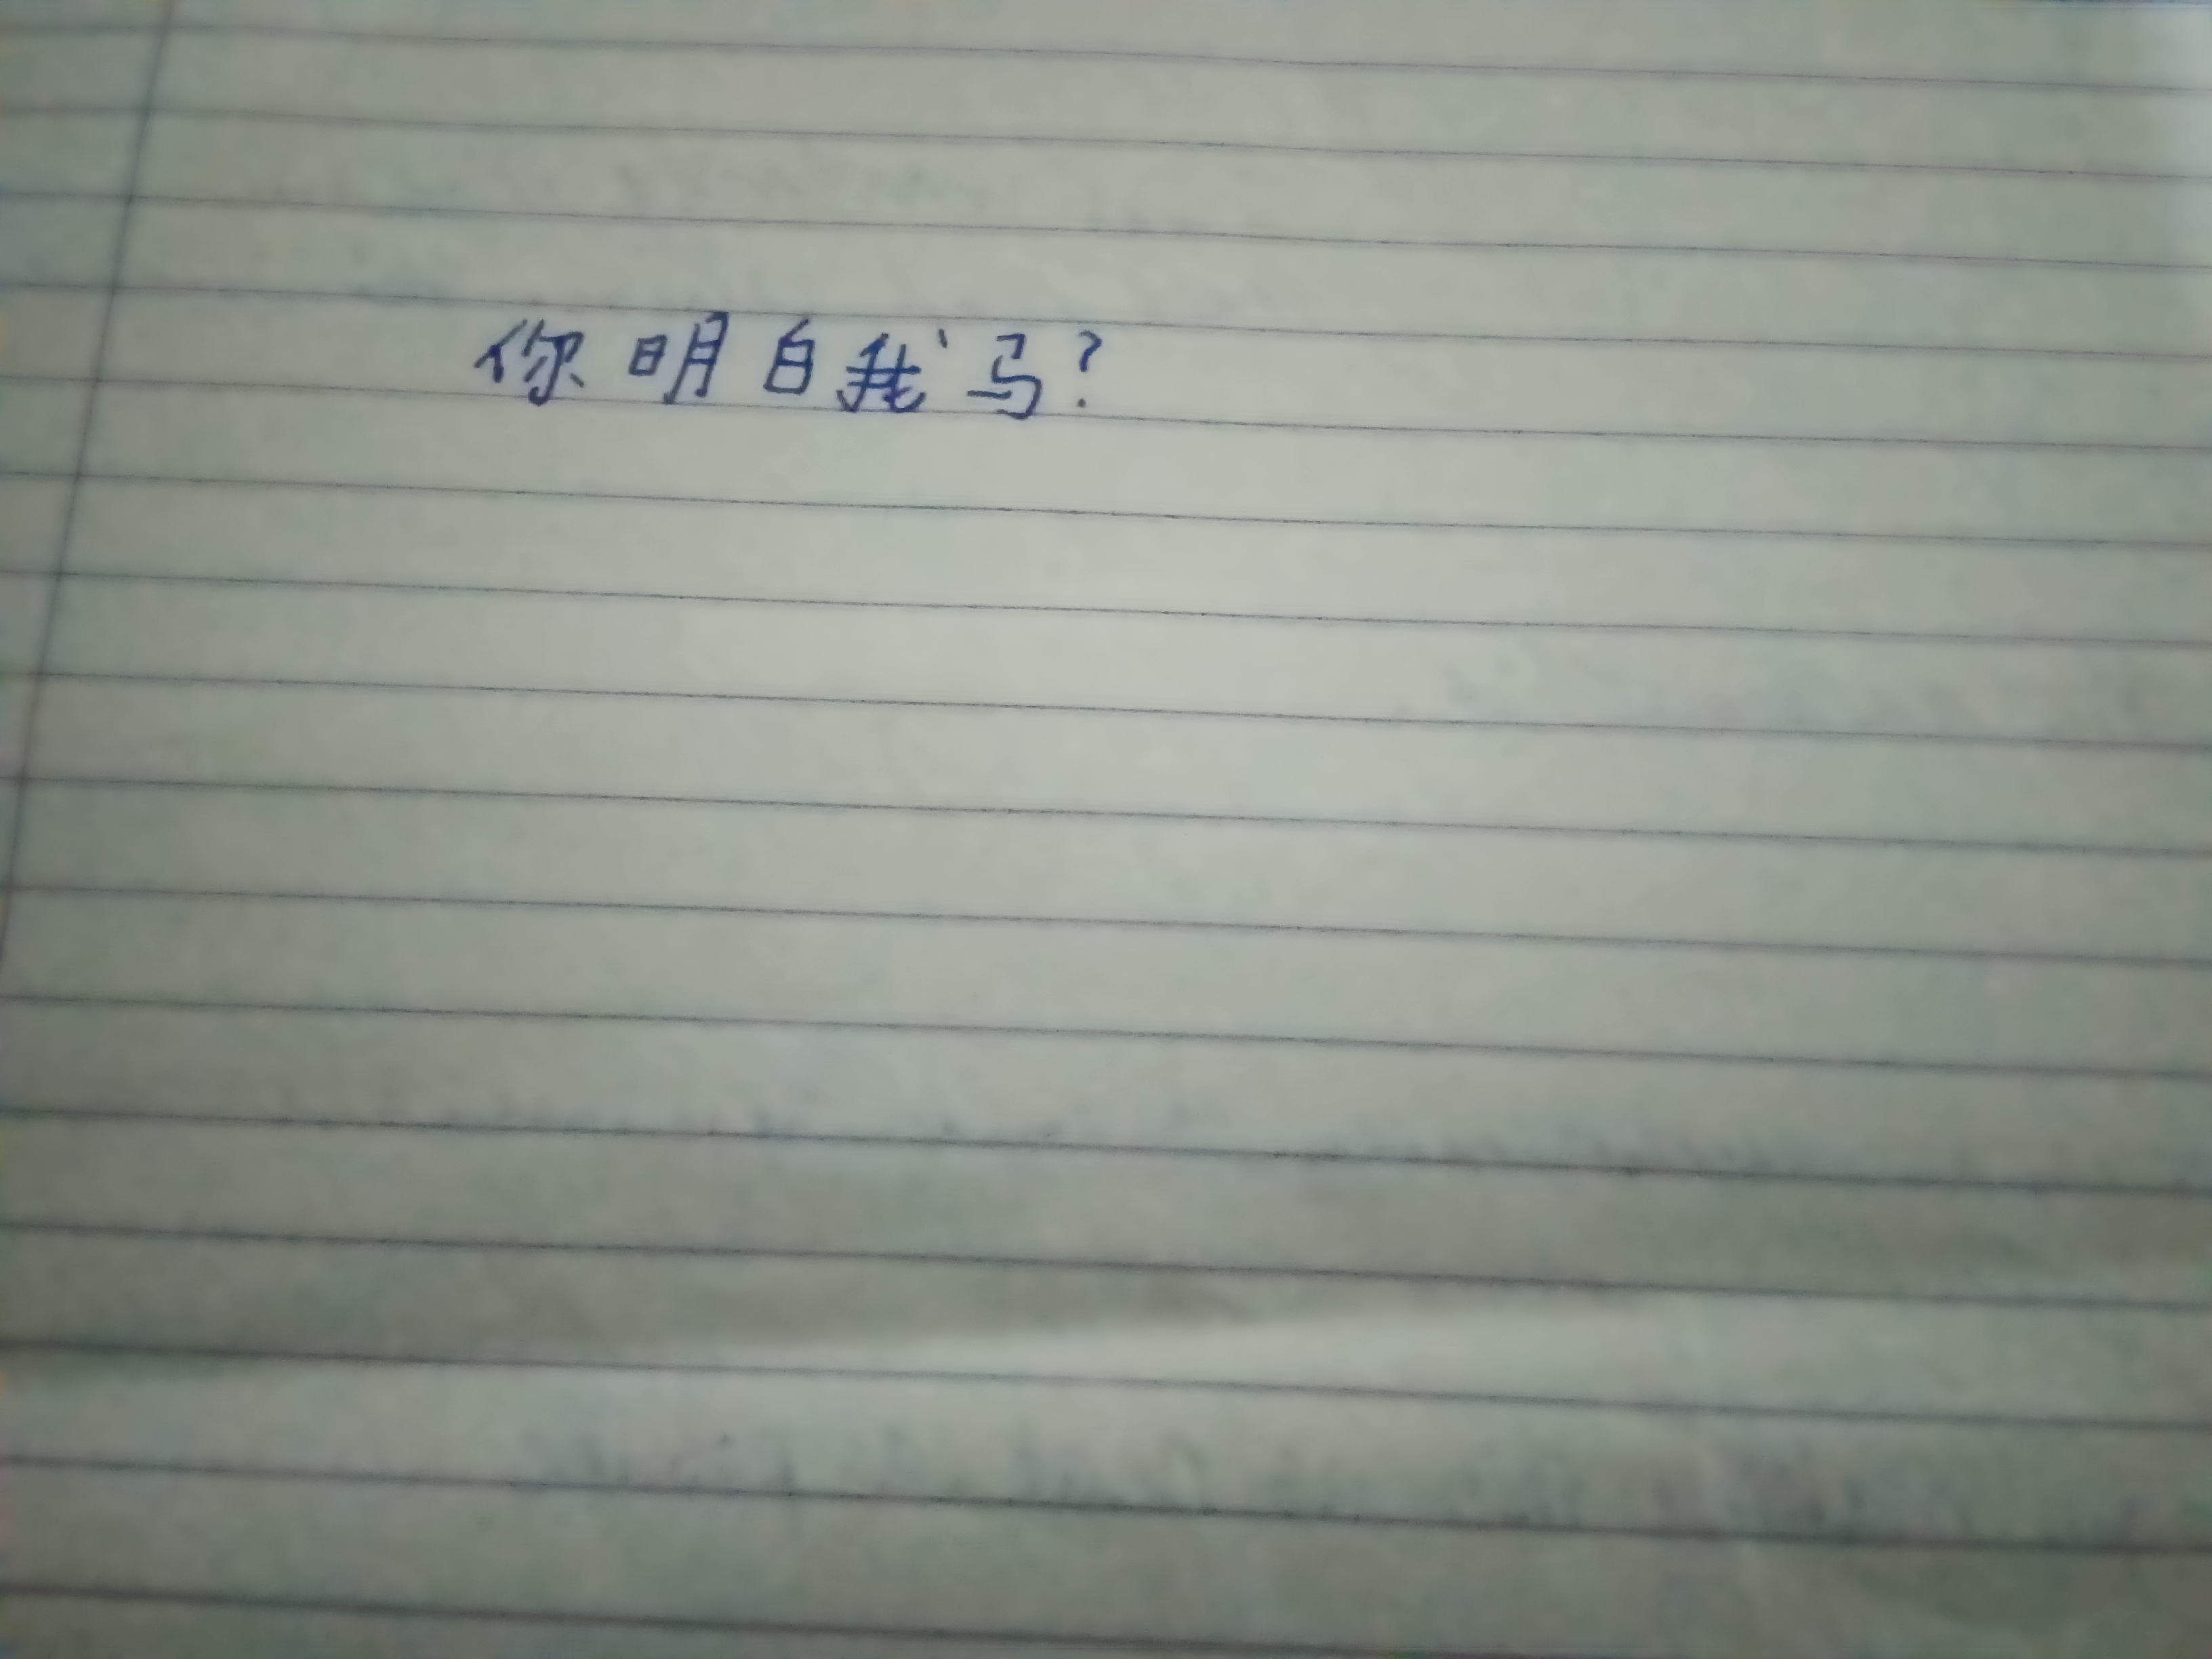 你明白我马?